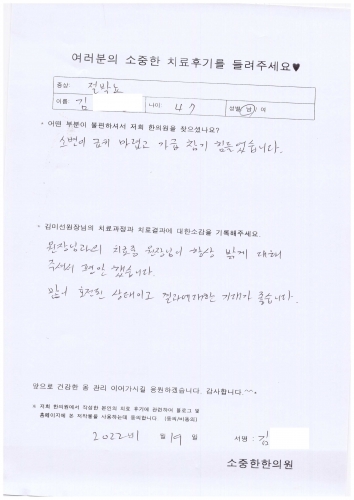 여러분의 소중한 치료후기를 들려주세요♥
증상: 절박뇨
이름: 김 나이 47 성별 남 / 여
- 어떤 부분이 불편하셔서 저희 한의원을 찾으셨나요?
소변이 급히 마렵고 가끔 참기 힘들었습니다.
- 김미선원장님의 치료과정과 치료결과에 대한소감을 기록해주세요.
원장님과의 치료중 원장님이 항상 밝게 대해
주셔서 편안했습니다.
많이 호전된 상태이고 결과에대한 기대가 좋습니다.
앞으로 건강한 몸 관리 이어가시길 응원하겠습니다. 감사합니다.~~
* 저희 한의원에서 작성한 본인의 치료 후기에 관련하여 블로그 및
홈페이지에 본 저작물을 사용하는데 동의합니다 (동의/비동의)
2022년 월 19일 서명 : 김
소중한한의원